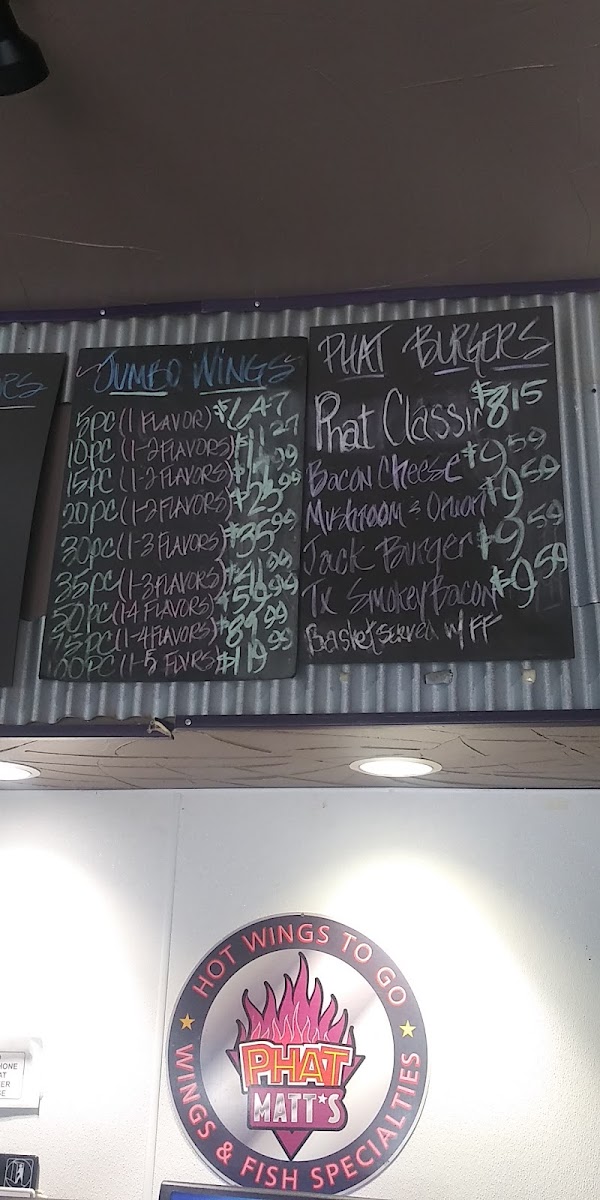 JUMBO WINGS
5PC (1 FLAVOR) $6.47
10PC (1-2 FLAVORS) $11.27
15PC (1-2 FLAVORS) $17.99
20PC (1-2 FLAVORS) $23.99
30PC (1-3 FLAVORS) $35.99
35PC (1-3 FLAVORS) $41.99
50PC (1-4 FLAVORS) $59.99
75PC (1-4 FLAVORS) $89.99
100PC (1-5 FLVRS) $119.99
PHAT BURGERS
Phat Classic $8.15
Bacon Cheese $9.59
Mushroom & Onion $9.59
Jack Burger $9.59
Tx Smokey Bacon $9.59
Basket served w/ FF
HOT WINGS TO GO
PHAT
MATT'S
WINGS & FISH SPECIALTIES